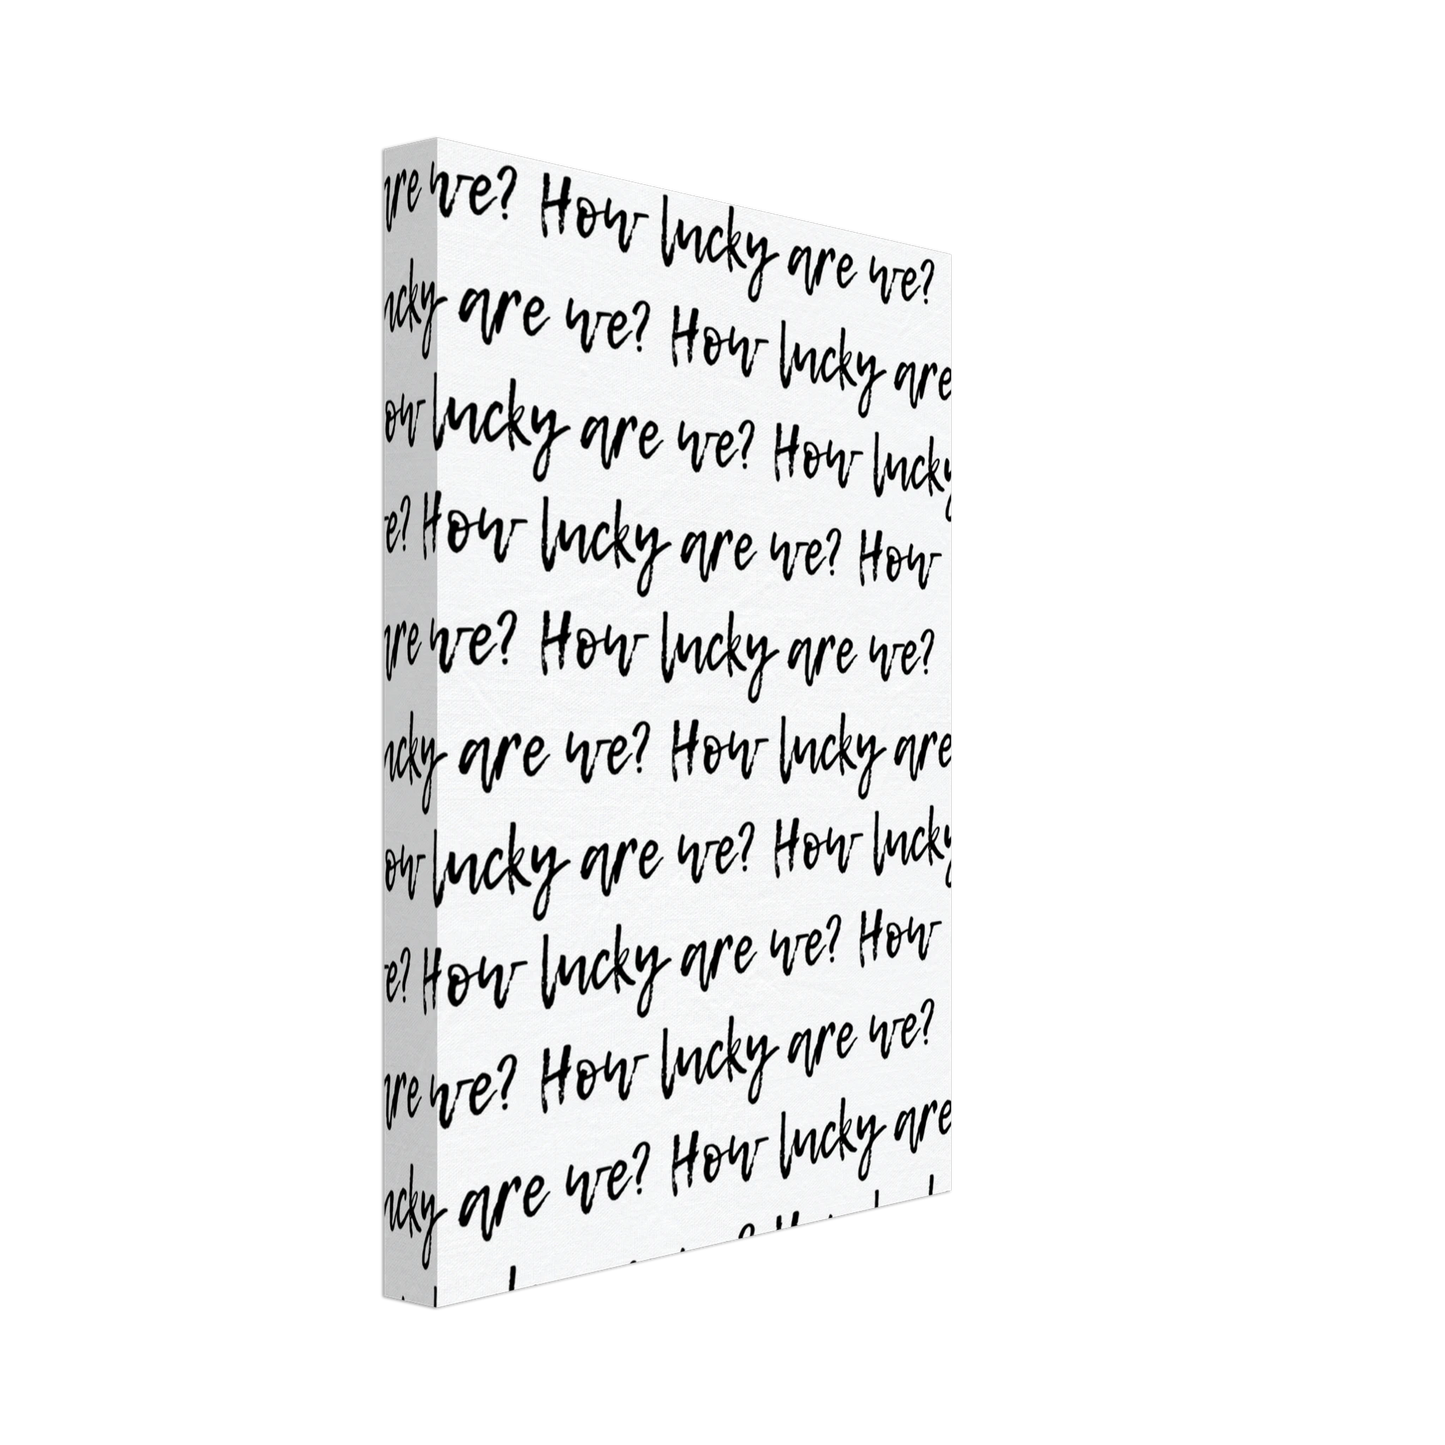 are we? How lucky are we?
ucky are we? How lucky are
ow lucky are we? How lucky
e? How lucky are we? How
are we? How lucky are we?
ucky are we? How lucky are
ow lucky are we? How lucky
e? How lucky are we? How
are we? How lucky are we?
ucky are we? How lucky are